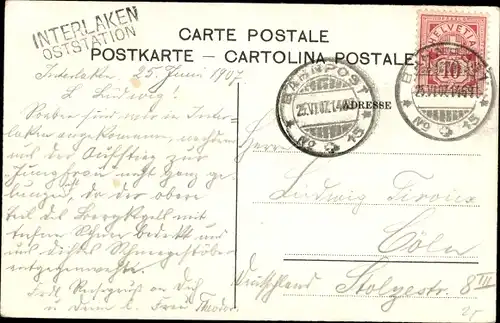 INTERLAKEN
OSTSTATION
CARTE POSTALE
POSTKARTE – CARTOLINA POSTALE
HELVETIA
10
BAHNPOST
25.VI.07.
No 15
BAHNPOST
25.VI.07.
No 15
ADRESSE
Interlaken 25 Juni 1907
L. Ludwig!
Soeben sind wir in Inter-
laken angekommen, nachdem
uns der Aufstieg zur
"Jungfrau" nicht ganz ge-
lungen, da der obere
Teil des Bergkegels mit
tiefem Schnee bedeckt und
uns dichtes Schneegestöber
entgegenwehte.
Herzgruss an Dich
u. Frau Theodor
Herrn
Ludwig
Cöln
Deutschland Stolzestr. 8 III